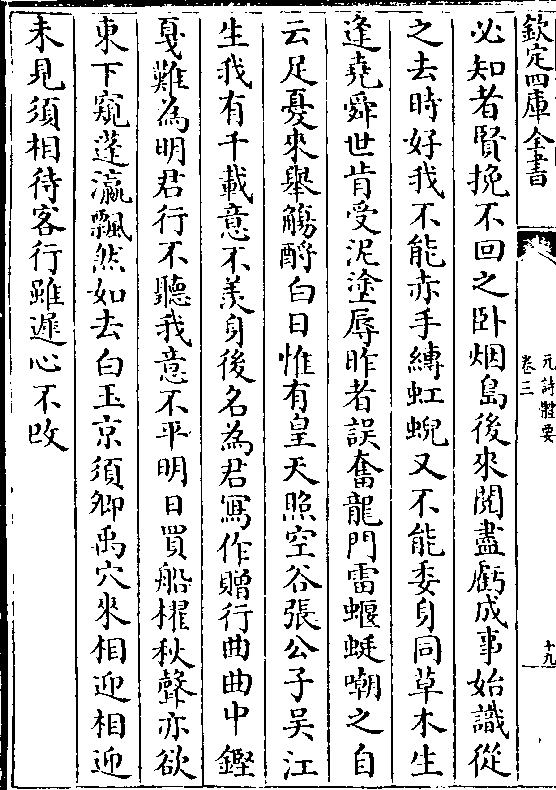 欽定四庫全書
元詩體要
卷三
十九
必知者賢挽不回之卧烟島後來閱盡虧成事始識從
之去時好我不能赤手縛虹蜺又不能委身同草木生
逢堯舜世肯受泥塗辱昨者誤奮龍門雷蝘蜓嘲之自
云足憂來舉觴酹白日惟有皇天照空谷張公子吳江
生我有千載意不羡身後名為君寫作贈行曲曲中鏗
戛難為明君行不聽我意不平明日買船櫂秋聲亦欲
東下窺蓬瀛飄然如去白玉京須鄉禹穴來相迎相迎
未見須相待客行雖遲心不改